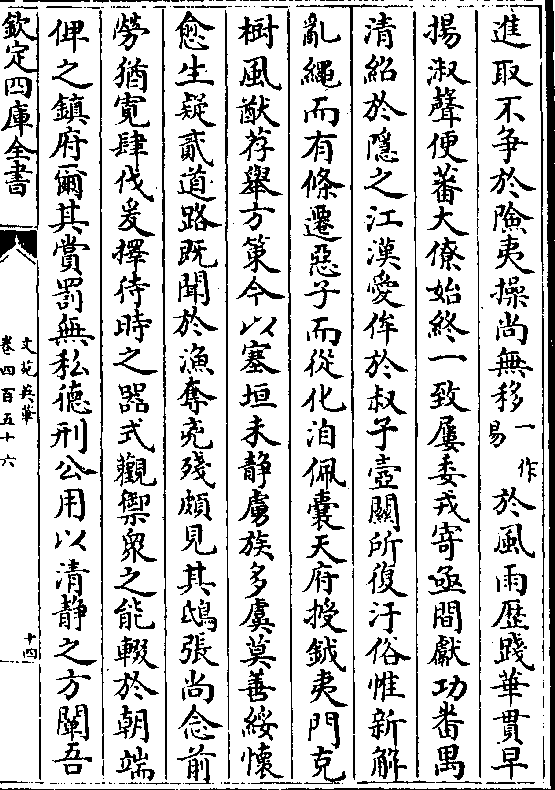 進取不爭於險夷操尚無移一作易於風雨歴踐華貫早
揚淑聲便蕃大僚始終一致屢委戎寄亟間獻功畨禺
清紹於隱之江漢愛侔於叔子壺闗所復汙俗惟新解
亂繩而有條遷惡子而從化洎佩嚢天府授鉞夷門克
樹風猷荐舉方策今以塞垣未静虜族多虞莫善綏懷
愈生疑貳道路既聞於漁奪兖殘頗見其鴟張尚念前
勞猶寛肆伐爰擇待時之器式觀禦衆之能輟於朝端
俾之鎮府爾其賞罰無私德刑公用以清静之方闡吾
欽定四庫全書
文苑英華
卷四百五十六
十四